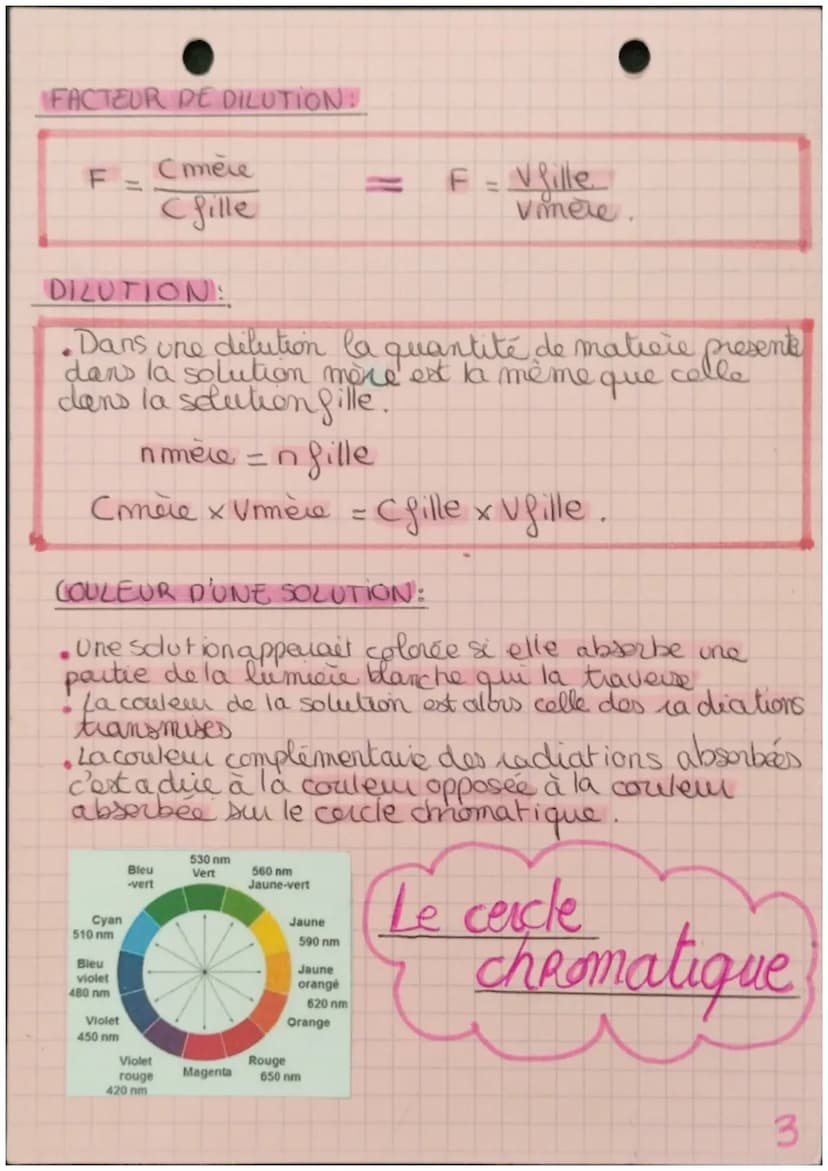 FACTEUR DE DILUTION :
F = Cmère / Cfille = F = Vfille / Vmère .
DILUTION :
. Dans une dilution la quantité de matière présente
dans la solution mère est la même que celle
dans la solution fille.
n mère = n fille
Cmère x Vmère = Cfille x Vfille .
COULEUR D'UNE SOLUTION :
. Une solution apperait colorée si elle absorbe une
partie de la lumière blanche qui la traverse
. La couleur de la solution est alors celle des radiations
transmises
. La couleur complémentaire des radiations absorbées
c'est a dire à la couleur opposée à la couleur
absorbée sur le cercle chromatique .
530 nm
Vert
Bleu
-vert
560 nm
Jaune-vert
Cyan
510 nm
Jaune
590 nm
Bleu
violet
480 nm
Jaune
orangé
620 nm
Violet
450 nm
Orange
Violet
rouge
420 nm
Magenta
Rouge
650 nm
Le cercle
chromatique
3